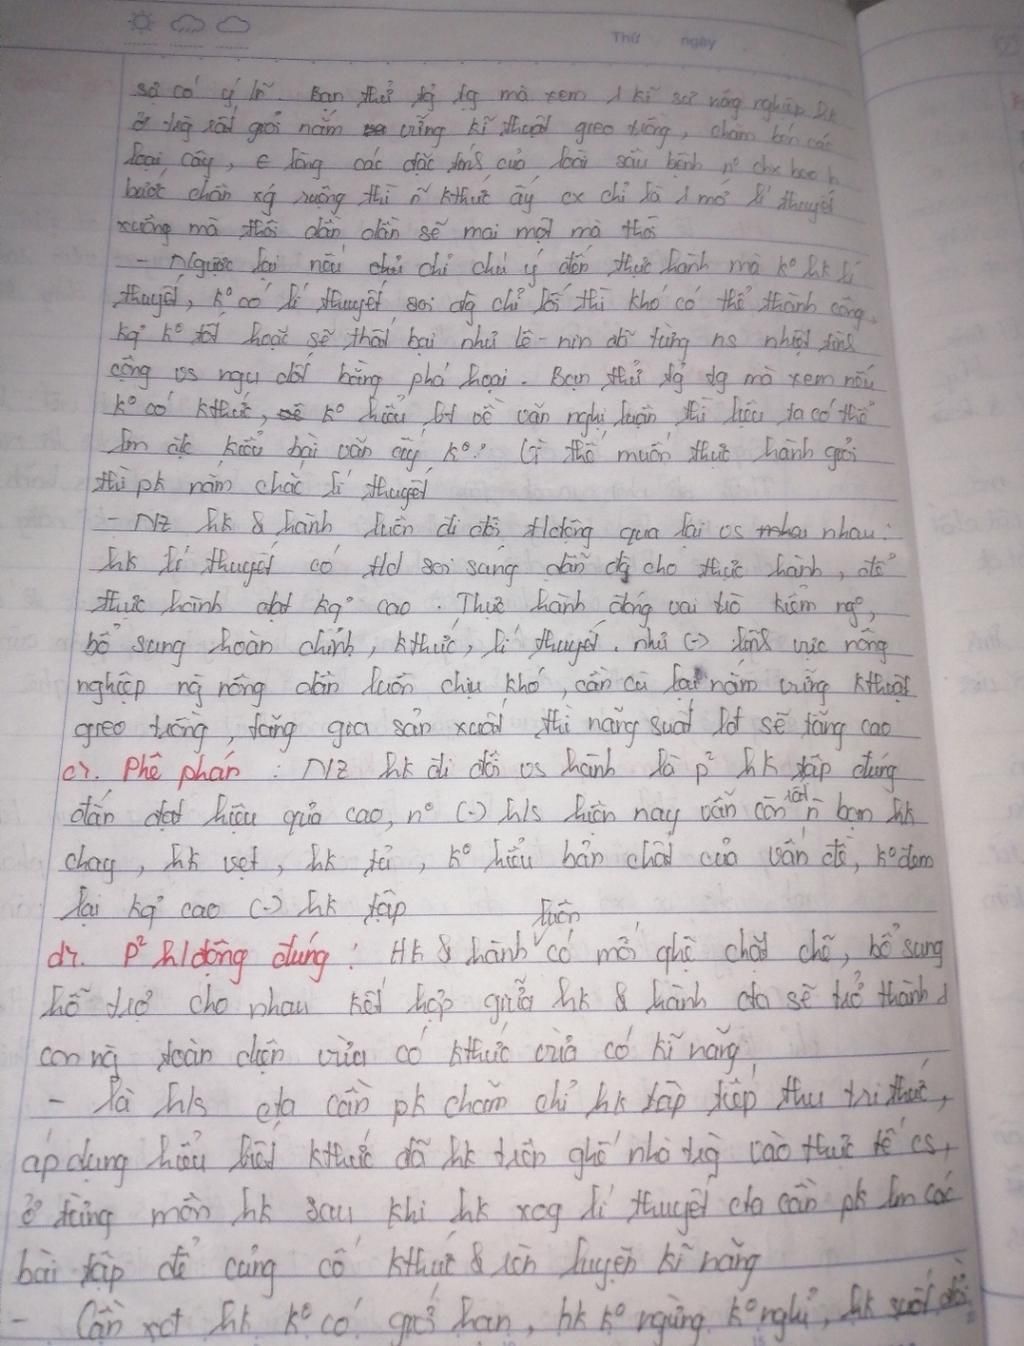 Thứ ngày
sẽ có ý lĩ. Bạn thử tg tg mà xem 1 kĩ sư nông nghiệp hk
ở trg rất giỏi nắm vững kĩ thuật gieo trồng, chăm bón các
loại cây, các đặc tính của loài sâu bệnh nº chx bao h
bước chân xg ruộng thì ñ kthức ấy cx chỉ là 1 mớ lí thuyết
xuông mà thôi dần dần sẽ mai một mà thôi
- Ngược lại nếu chỉ chú ý đến thực hành mà kº hk lí
thuyết, kº có lí thuyết soi đg chỉ lối thì khó có thể thành công,
kqº kº tốt hoặc sẽ thất bại như lê-nin đã từng ns nhiệt tình
cộng vs ngu dốt bằng phá hoại. Bạn thử tg tg mà xem nếu
kº có kthức, kº hiểu bt về văn nghị luận thì liệu ta có thể
lm đc kiểu bài văn ấy kº? Vì thế muốn thực hành giỏi
thì pk nắm chắc lí thuyết
- NZ hk & hành luôn đi đôi tđộng qua lại vs nhau:
hk lí thuyết có td soi sáng dẫn đg cho thực hành, để
thực hành đạt kqº cao. Thực hành đóng vai trò kiểm ngº,
bổ sung hoàn chỉnh, kthức, lí thuyết. như (-) lĩnh vực nông
nghiệp ng nông dân luôn chịu khó, cần cù lại nắm vững kthuật
gieo trồng, tăng gia sản xuất thì năng suất lđ sẽ tăng cao
c>. Phê phán : NZ hk đi đôi vs hành là p² hk tập đúng
đắn đạt hiệu quả cao, nº (-) h/s hiện nay vẫn còn rất ñ bạn hk
chay, hk vẹt, hk tủ, kº hiểu bản chất của vấn đề, kº đem
lại kqº cao (-) hk tập
d>. P² hđộng đúng : Hk & hành luôn có mối qhệ chặt chẽ, bổ sung
hỗ trợ cho nhau kết hợp giữa hk & hành cta sẽ trở thành 1
con ng toàn diện vừa có kthức vừa có kĩ năng
- Là h/s cta cần pk chăm chỉ hk tập tiếp thu tri thức,
áp dụng hiểu biết kthức đã hk trên ghế nhà trg vào thực tế cs,
ở từng môn hk sau khi hk xog lí thuyết cta cần pk lm các
bài tập để củng cố kthức & rèn luyện kĩ năng
- Cần xđ hk kº có giới hạn, hk kº ngừng kº nghỉ, hk suốt đời